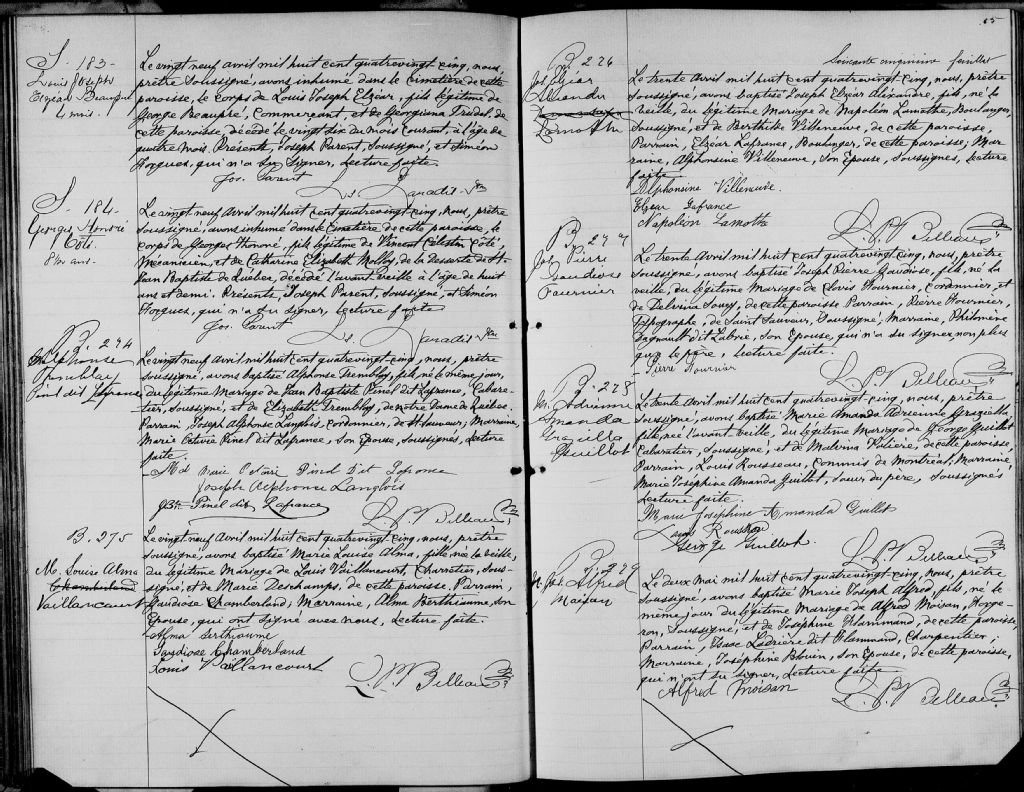 S. 183-
Louis Joseph
Elzéar Beaupré
4 mois.
Le vingt neuf avril mil huit cent quatrevingt-cinq, nous,
prêtre soussigné, avons inhumé dans le cimetière de cette
paroisse, le corps de Louis Joseph Elzéar, fils légitime de
George Beaupré, Commerçant, et de Georgiana Trudel, de
cette paroisse, décédé le vingt six du mois courant, à l'âge de
quatre mois. Présents, Joseph Parent, soussigné, et Siméon
qui n'a su signer. Lecture faite
Jos. Parent
S. 184-
Georges Honoré
Côté.
8½ ans.
Le vingt neuf avril mil huit cent quatrevingt-cinq, nous, prêtre
soussigné, avons inhumé dans le cimetière de cette paroisse, le
corps de Georges Honoré, fils légitime de Vincent Célestin Côté,
Mécanicien, et de Catherine Elizabeth Molloy, de la Desserte de St-
Jean Baptiste de Québec, décédé l'avant-veille à l'âge de huit
ans et demi. Présents, Joseph Parent, soussigné, et Siméon
qui n'a su signer, Lecture faite
Jos. Parent
B. 274
Alphonse
Tremblay
Pinel dit Lafrance
Le vingt neuf avril mil huit cent quatrevingt-cinq, nous, prêtre
soussigné, avons baptisé Alphonse Tremblay, fils, né le même jour,
du légitime Mariage de Jean Baptiste Pinel dit Lafrance, Cabare-
tier, soussigné, et de Elizabeth Tremblay, de Notre Dame de Québec.
Parrain Joseph Alphonse Langlois, cordonnier, de St-Sauveur, Marraine,
Marie Octavie Pinel dit Lafrance, son Epouse, soussignés, Lecture
faite.
Joseph Alphonse Langlois
J Bte Pinel dit Lafrance
B. 275
M. Louise Alma
Chamberland
Vaillancourt
Le vingt neuf avril mil huit cent quatrevingt-cinq, nous, prêtre
soussigné, avons baptisé Marie Louise Alma, fille, née la veille,
du légitime Mariage de Louis Vaillancourt, Charretier, sous-
signé, et de Marie Deschamps, de cette paroisse, Parrain,
Gaudiose Chamberland; Marraine, Alma Berthiaume, son
Epouse, qui ont signé avec nous, Lecture faite.
Alma Berthiaume
Gaudiose Chamberland
Louis Vaillancourt
65
Soixante cinquième feuillet
B. 276
Jos. Elzéar
Alexandre
Lamothe
Le trente Avril mil huit cent quatrevingt-cinq, nous, prêtre
soussigné, avons baptisé Joseph Elzéar Alexandre, fils, né la
veille, du légitime Mariage de Napoléon Lamothe, Boulanger,
soussigné, et de Berthilde Villeneuve, de cette paroisse,
Parrain, Elzéar Lafrance, Boulanger, de cette paroisse; Mar-
raine, Alphonsine Villeneuve, son Epouse, soussignés, Lecture
faite
Alphonsine Villeneuve.
Elzear Lafrance
Napoléon Lamothe
B. 277
Jos. Pierre
Gaudiose
Fournier
Le trente Avril mil huit cent quatrevingt-cinq, nous, prêtre
soussigné, avons baptisé Joseph Pierre Gaudiose, fils, né la
veille, du légitime Mariage de Clovis Fournier, cordonnier, et
de Delvina Soucy, de cette paroisse, Parrain, Pierre Fournier,
Typographe, de Saint Sauveur, soussigné, Marraine, Philomène
dit Labrie, son Epouse, qui n'a su signer, non plus
que le père, Lecture faite.
Pierre Fournier
B. 278
M. Adrienne
Amanda
Graziella
Guillot
Le trente Avril mil huit cent quatrevingt-cinq, nous, prêtre
soussigné, avons baptisé Marie Amanda Adrienne Graziella,
fille, née l'avant veille, du légitime Mariage de George Guillot,
Cabaretier, soussigné, et de Malvina de cette paroisse,
Parrain, Louis Rousseau, Commis de Montréal, Marraine,
Marie Joséphine Amanda Guillot, soeur du père, soussignés
Lecture faite.
Marie Josephine Amanda Guillot
Louis Rousseau
George Guillot
B. 279
M. Jos. Alfred
Moisan
Le deux Mai mil huit cent quatrevingt-cinq, nous, prêtre
soussigné, avons baptisé Marie Joseph Alfred, fils, né le
même jour du légitime Mariage de Alfred Moisan, Forge-
ron, soussigné, et de Joséphine Flammand, de cette paroisse,
Parrain, Isaac Ladrière dit Flammand, Charpentier;
Marraine, Joséphine Blouin, son Epouse, de cette paroisse,
qui n'ont su signer, Lecture faite
Alfred Moisan